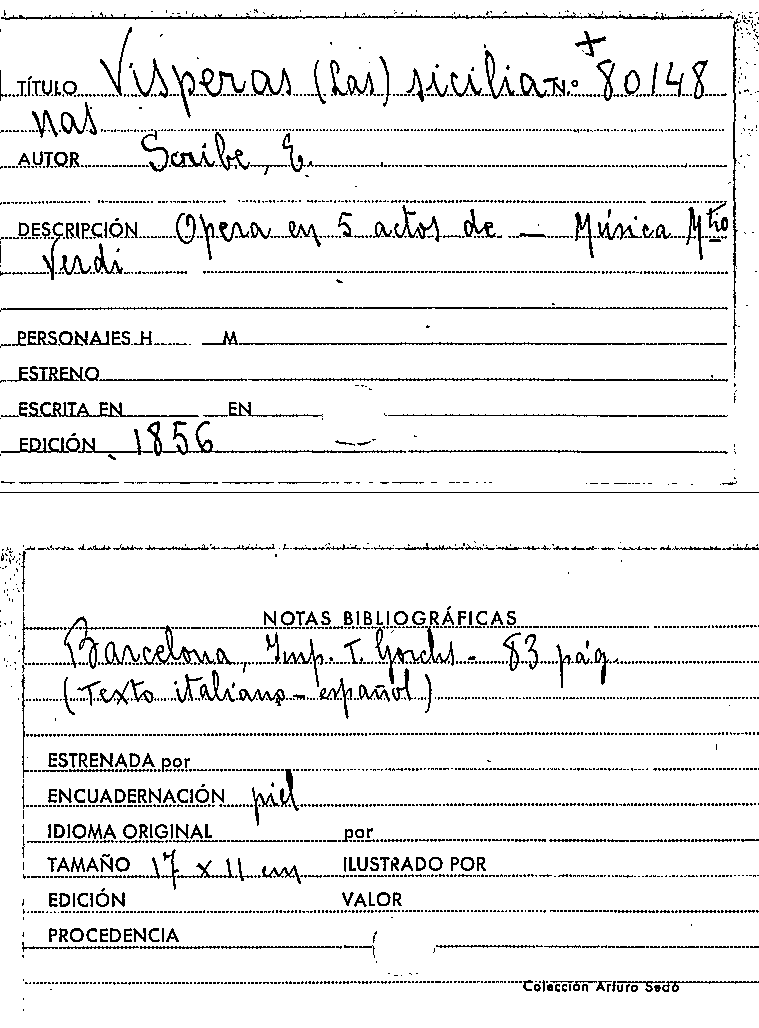 +
TÍTULO Vísperas (Las) sicilia Nº 80148
nas
AUTOR Scribe, E.
DESCRIPCIÓN Opera en 5 actos de — Música Mtro
Verdi
PERSONAJES H M
ESTRENO
ESCRITA EN EN
EDICIÓN 1856
NOTAS BIBLIOGRÁFICAS
Barcelona, Imp. T. Gorchs - 83 pág.
(Texto italiano - español)
ESTRENADA por
ENCUADERNACIÓN piel
IDIOMA ORIGINAL por
TAMAÑO 17 x 11 cm ILUSTRADO POR
EDICIÓN VALOR
PROCEDENCIA
Colección Arturo Sedó